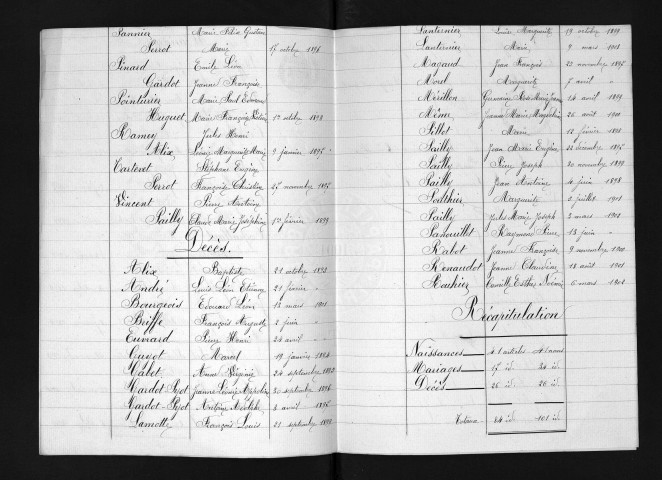 Sannier Marie Félix Gustave
Perrot Marie 17 octobre 1896
Pinard Emile Léon
Gardot Jeanne Françoise
Sointurier Marie Paul Edouard
Huguet Marie Françoise 1er octobre 1898
Ramey Jules Henri
Alix Louise Marguerite Marie 9 janvier 1895
Carteret Stéphane Eugène
Perrot Françoise Christine 27 novembre 1895
Vincent Pierre Antoine
Pailly Claude Marie Joséphine 1er février 1899
Décès.
Alix Baptiste 21 octobre 1893
André Louis Léon Etienne 21 février "
Bourgeois Edouard Léon 13 mars 1901
Briffe François Auguste 2 juin "
Euvrard Pierre Henri 24 avril "
Guyot Marcel 19 janvier 1894
Habet Anne Virginie 24 septembre 1893
Hardot-Pyot Jeanne Léonie 20 septembre 1896
Hardot-Pyot Antoine 3 avril 1895
Lamotte François Louis 21 septembre 1899
Lanternier Louise Marguerite 19 octobre 1899
Lanternier Marie 9 mars 1901
Magaud Jean François 22 novembre 1895
Morel Marguerite 7 avril "
Mérillon Germaine 24 avril 1899
Même Jeanne Marie Magdeleine 26 avril 1901
Pillot Marie 12 février 1898
Pailly Jean Marie Eugène 23 décembre 1895
Pailly Pierre Joseph 20 novembre 1899
Pailly Jean Antoine 4 juin 1898
Marguerite 2 juillet 1901
Pailly Jules Marie Joseph 3 mars 1902
Panouillot Raymond Pierre 13 juin "
Rabot Jeanne Françoise 9 novembre 1900
Renaudot Jeanne Claudine 13 août 1901
Camille Esther Noémie 6 mars 1902
Récapitulation
Naissances 41 articles 41 noms
Mariages 17 id. 34 id.
Décès 26 id. 26 id.
Totaux 84 id. 101 id.